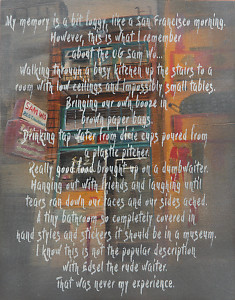 My memory is a bit foggy, like a San Francisco morning.
However, this is what I remember
about the OG Sam Wo...
Walking through a busy kitchen up the stairs to a
room with low ceilings and impossibly small tables.
Bringing our own booze in
brown paper bags.
Drinking tap water from dixie cups poured from
a plastic pitcher.
Really good food brought up on a dumbwaiter.
Hanging out with friends and laughing until
tears ran down our faces and our sides ached.
A tiny bathroom so completely covered in
hand styles and stickers it should be in a museum.
I know this is not the popular description
with Edsel the rude waiter.
That was never my experience.